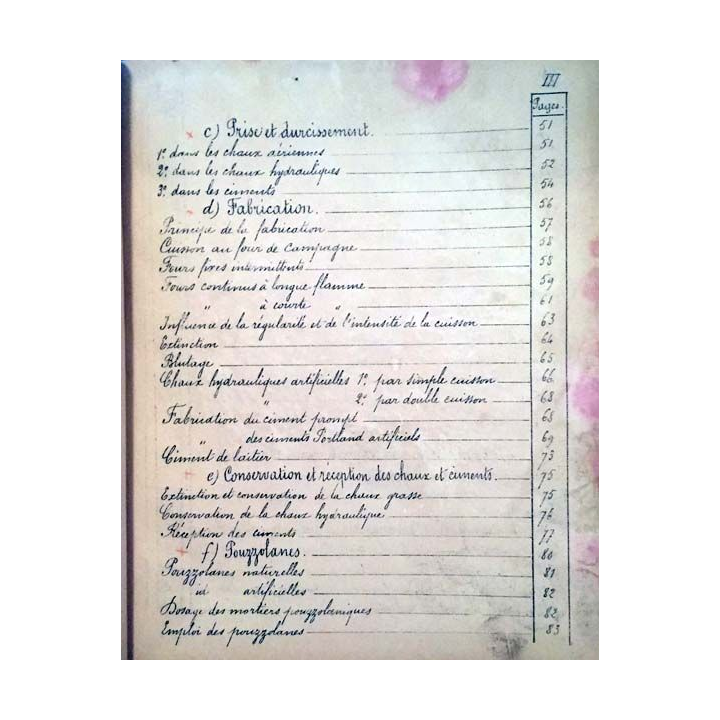 III
Pages.
c) Prise et durcissement. 51
1º dans les chaux aériennes 51
2º dans les chaux hydrauliques 52
3º dans les ciments 54
d) Fabrication. 56
Principe de la fabrication 57
Cuisson au four de campagne 58
Fours fixes intermittents 58
Fours continus à longue flamme 59
" à courte " 61
Influence de la régularité et de l'intensité de la cuisson 63
Extinction 64
Blutage 65
Chaux hydrauliques artificielles 1º par simple cuisson 66
" 2º par double cuisson 68
Fabrication du ciment prompt 68
" des ciments Portland artificiels 69
Ciment de laitier 73
e) Conservation et réception des chaux et ciments. 75
Extinction et conservation de la chaux grasse 75
Conservation de la chaux hydraulique 76
Réception des ciments 77
f) Pouzzolanes. 80
Pouzzolanes naturelles 81
id artificielles 82
Dosage des mortiers pouzzolaniques 82
Emploi des pouzzolanes 83